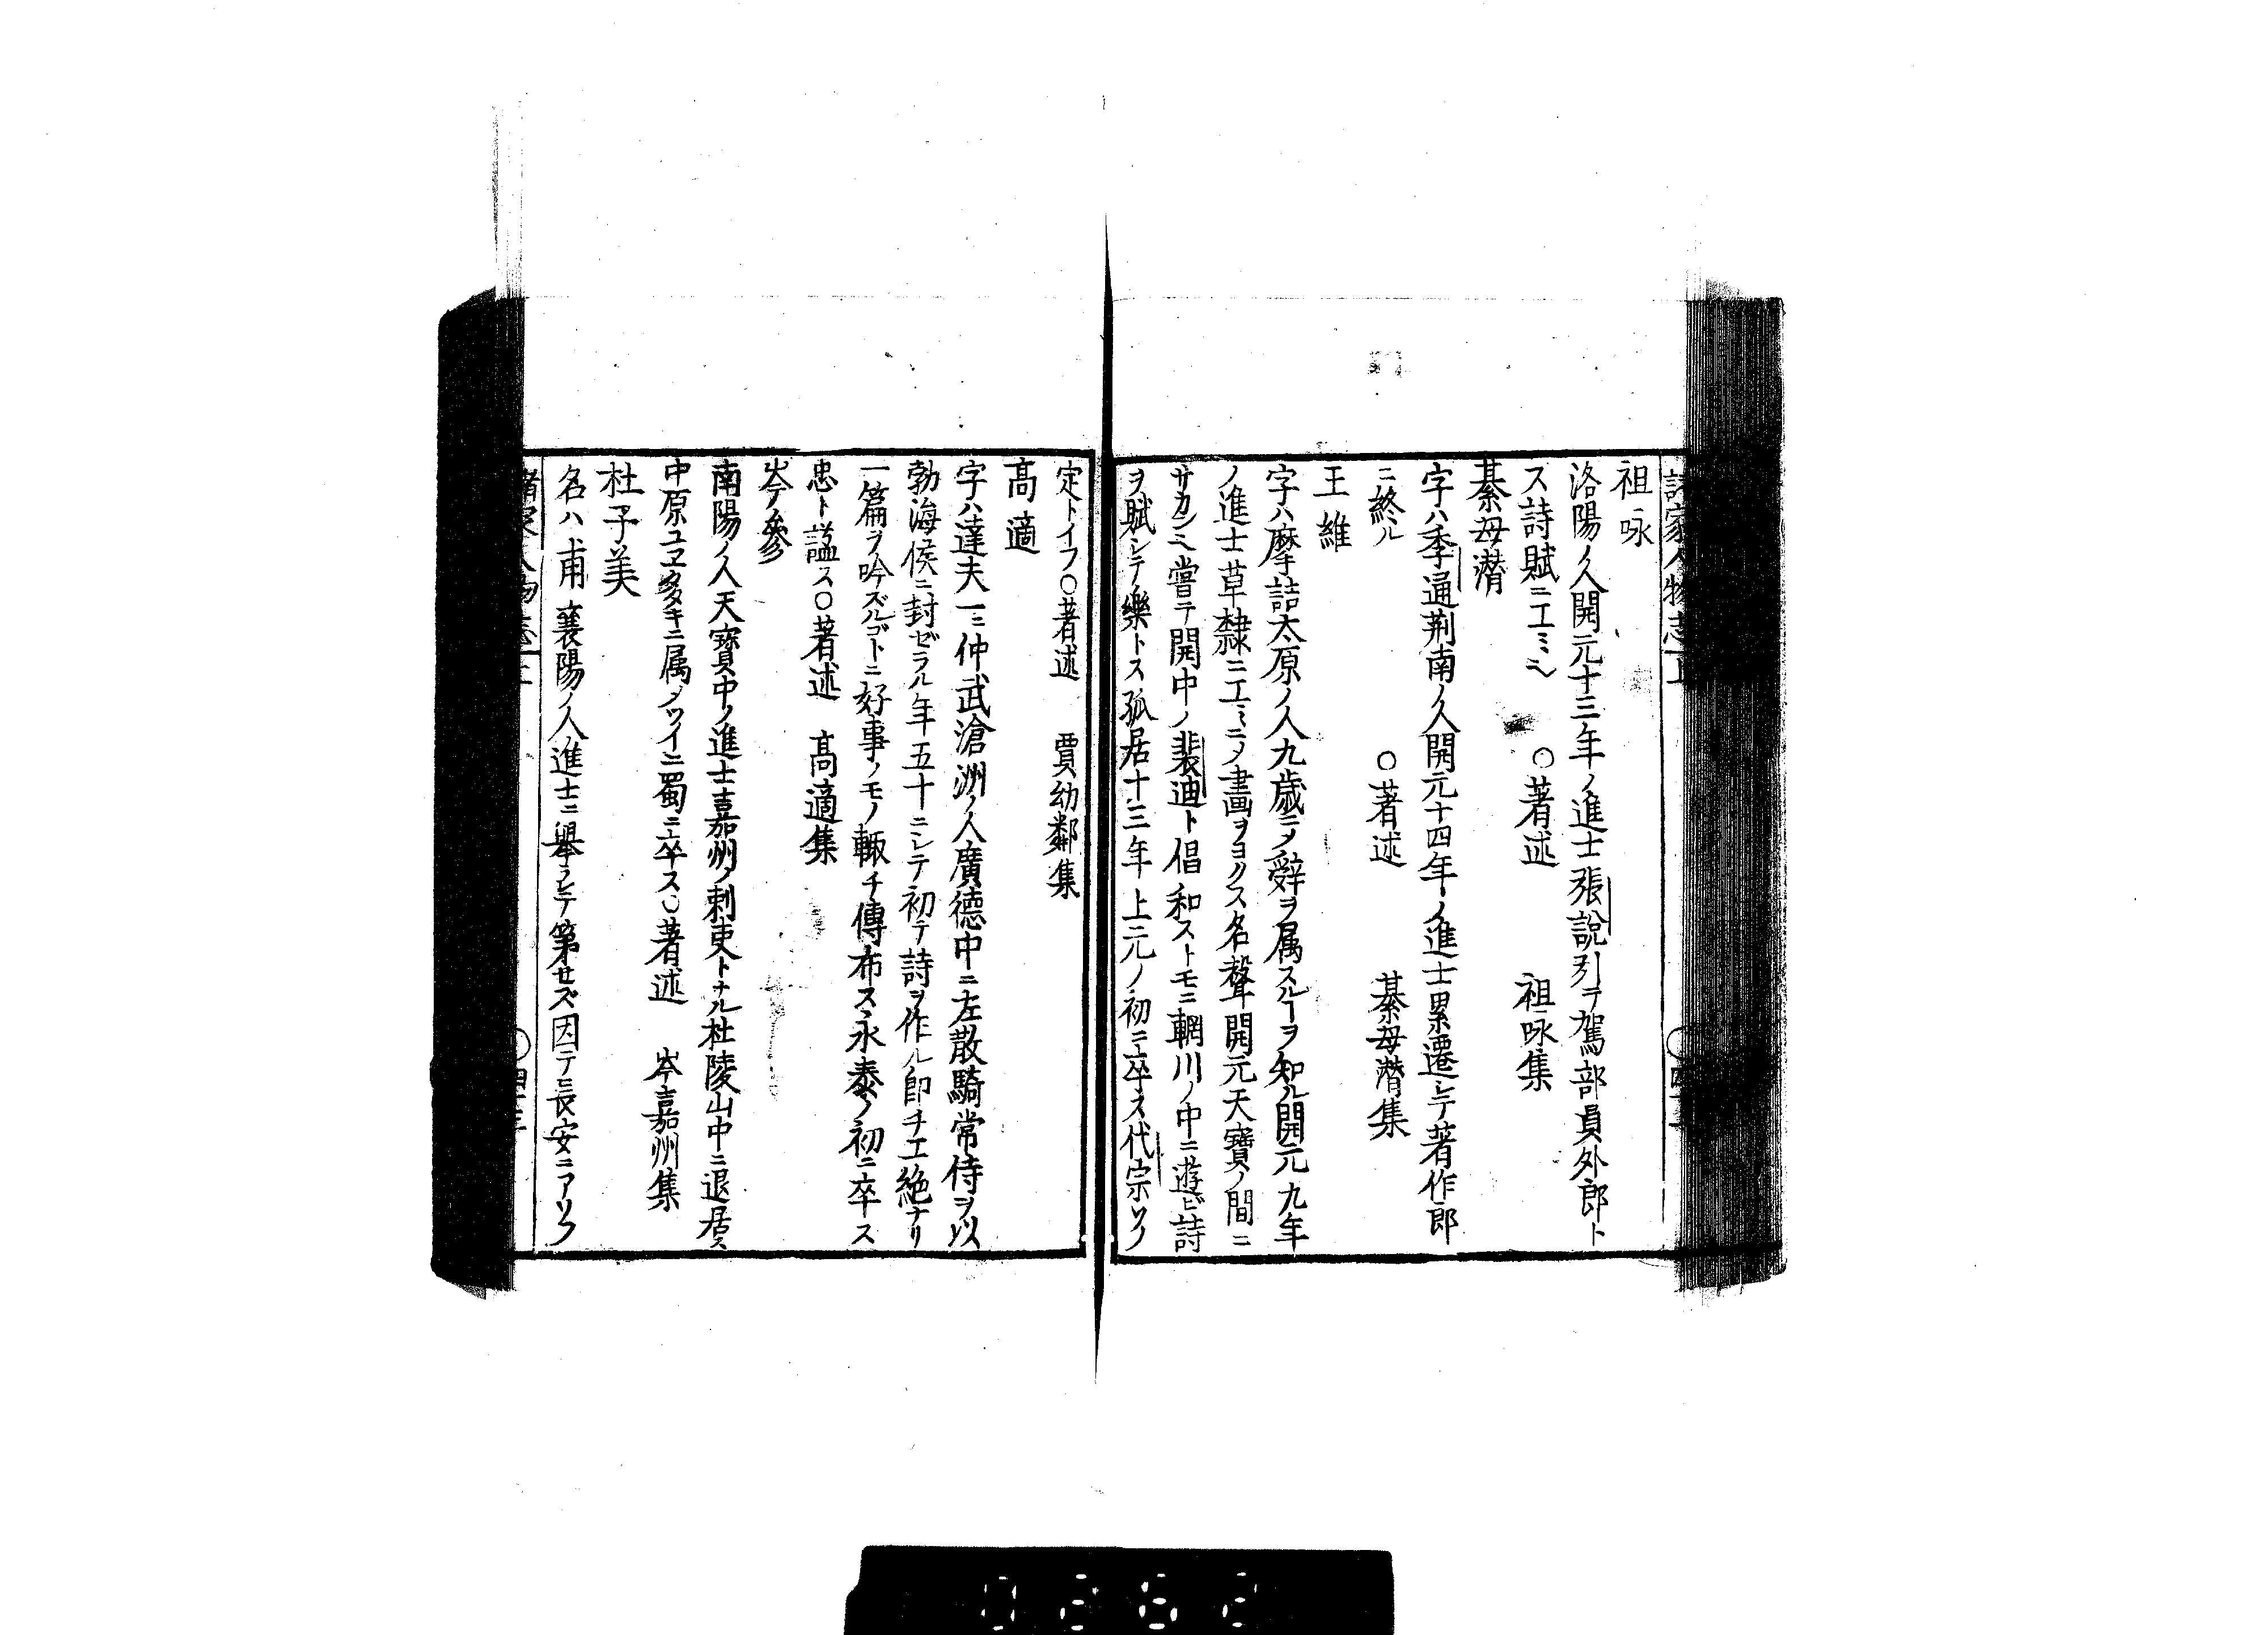 諸家人物志上
祖咏
洛陽ノ人開元十三年ノ進士張說引テ駕部員外郎ト
ス詩賦ニエミシ ○著述 祖咏集
綦毋潛
字ハ季通荊南ノ人開元十四年ノ進士累遷シテ著作郎
ニ終ル ○著述 綦毋潛集
王維
字ハ摩詰太原ノ人九歲ニメ辭ヲ属スルヿヲ知ル開元九年
ノ進士草隸ニエミニメ畫ヲヨクス名聲開元天寶ノ間ニ
サカンミ嘗テ開中ノ裴迪ト倡和ストモニ輞川ノ中ニ遊ビ詩
ヲ賦シテ樂トス孤居十三年上元ノ初ニ卒ス代宗ソノ
定トイフ○著述 賈幼鄰集
高適
字ハ達夫一ニ仲武滄洲ノ人廣德中ニ左散騎常侍ヲ以
勃海侯ニ封ゼラル年五十ニシテ初テ詩ヲ作ル即チ工絕ナリ
一篇ヲ吟ズルゴトニ好事ノモノ輙チ傳布ス永泰ノ初ニ卒ス
忠ト謚ス○著述 高適集
岑參
南陽ノ人天寶中ノ進士嘉州ノ刺吏トナル杜陵山中ニ退居ス
中原ユヱ多キニ属メツイニ蜀ニ卒ス○著述 岑嘉州集
杜子美
名ハ甫襄陽ノ人進士ニ舉シテ第セズ因テ長安ニアリソ
諸家人物志上